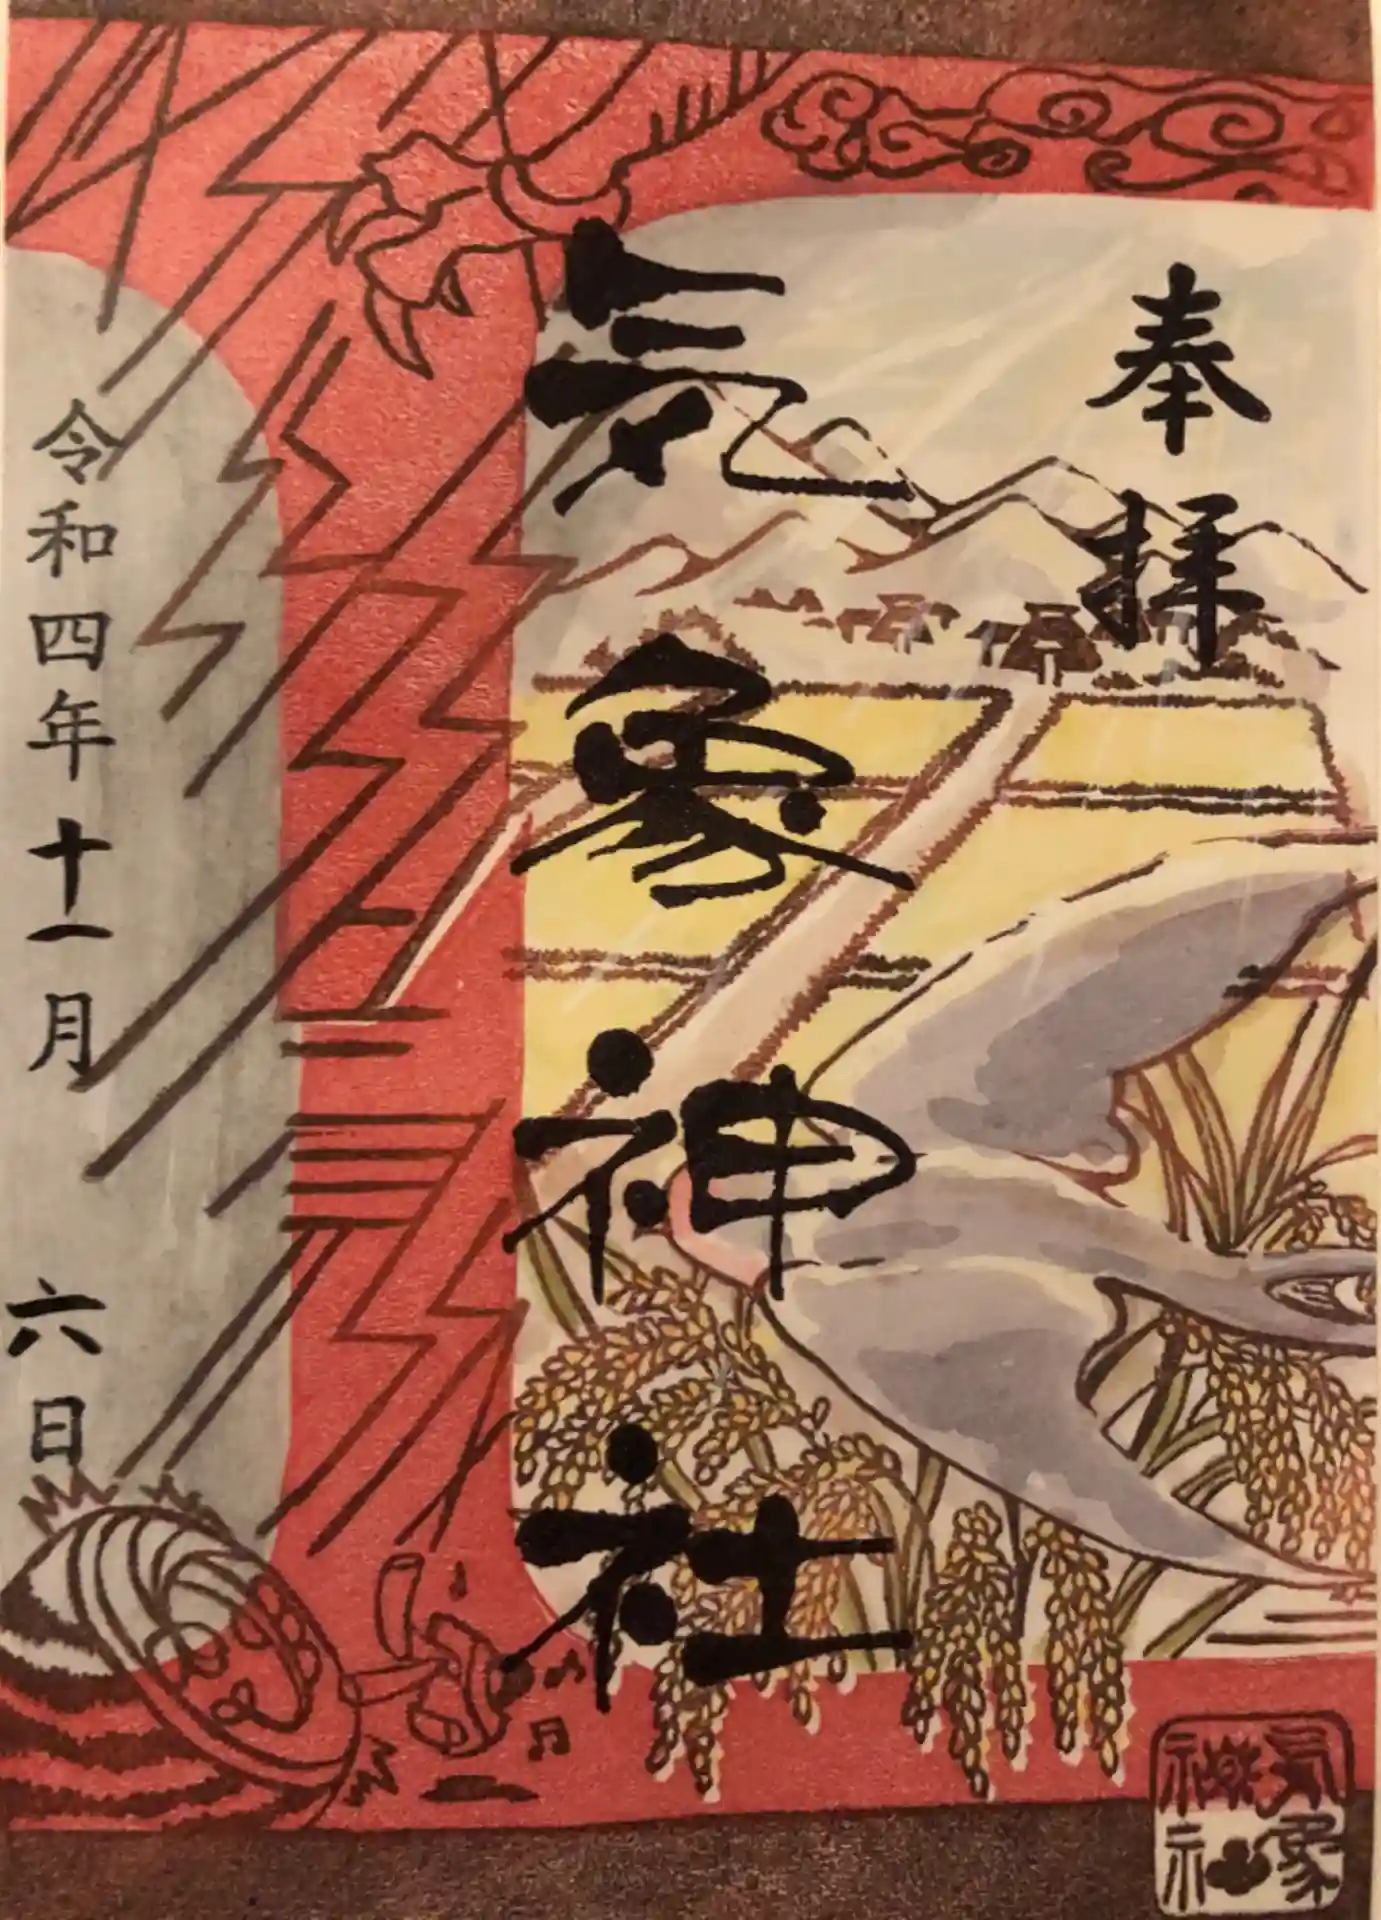 奉拝
気象神社
令和四年十一月六日
気象
神社